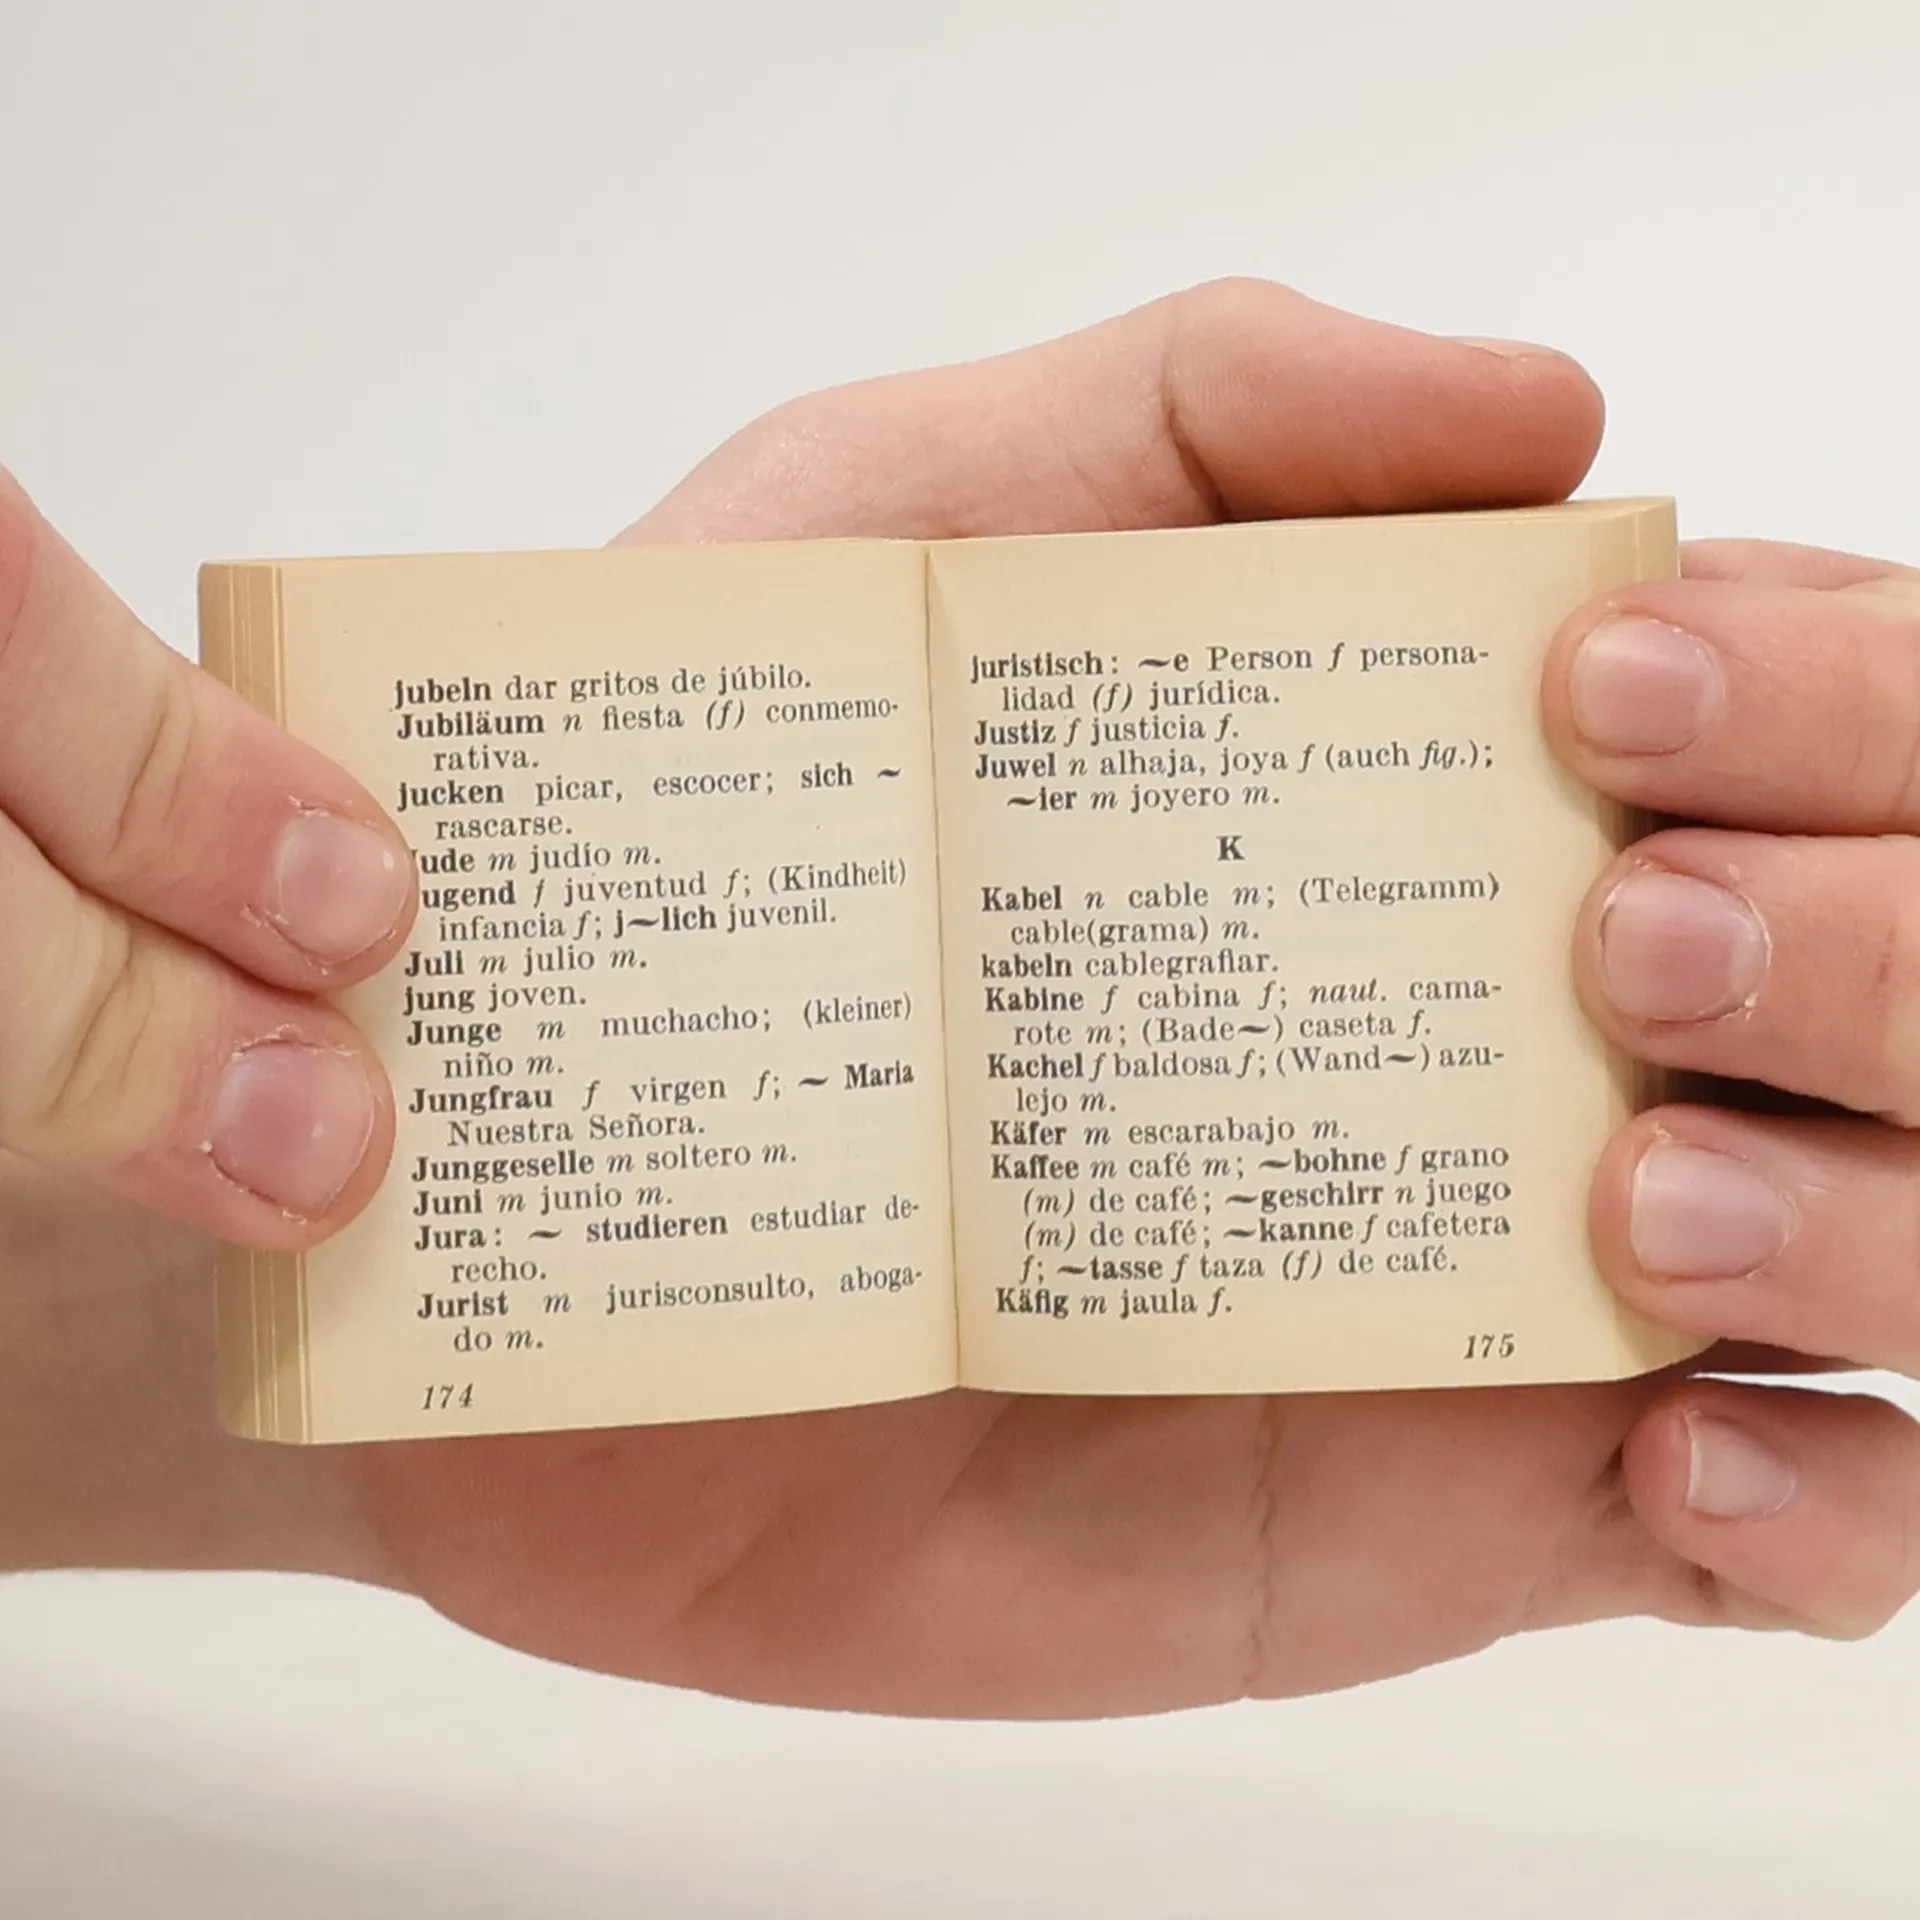 jubeln dar gritos de júbilo.
Jubiläum n fiesta (f) conmemo-
rativa.
jucken picar, escocer; sich ~
rascarse.
ude m judío m.
ugend f juventud f; (Kindheit)
infancia f; j~lich juvenil.
Juli m julio m.
jung joven.
Junge m muchacho; (kleiner)
niño m.
Jungfrau f virgen f; ~ Maria
Nuestra Señora.
Junggeselle m soltero m.
Juni m junio m.
Jura: ~ studieren estudiar de-
recho.
Jurist m jurisconsulto, aboga-
do m.
174
juristisch: ~e Person f persona-
lidad (f) jurídica.
Justiz f justicia f.
Juwel n alhaja, joya f (auch fig.);
~ier m joyero m.
K
Kabel n cable m; (Telegramm)
cable(grama) m.
kabeln cablegrafiar.
Kabine f cabina f; naut. cama-
rote m; (Bade~) caseta f.
Kachel f baldosa f; (Wand~) azu-
lejo m.
Käfer m escarabajo m.
Kaffee m café m; ~bohne f grano
(m) de café; ~geschirr n juego
(m) de café; ~kanne f cafetera
f; ~tasse f taza (f) de café.
Käfig m jaula f.
175